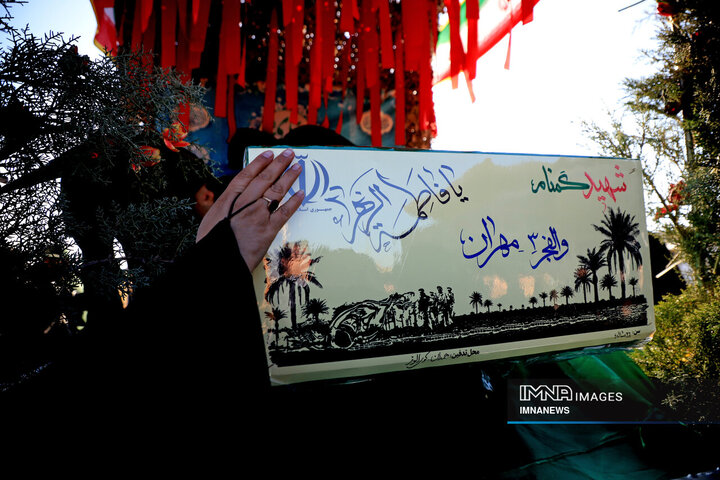 شهید گمنام
یا فاطمة الزهرا
والفجر ۳ مهران
محل تدفین: همدان
IMNA IMAGES
IMNANEWS